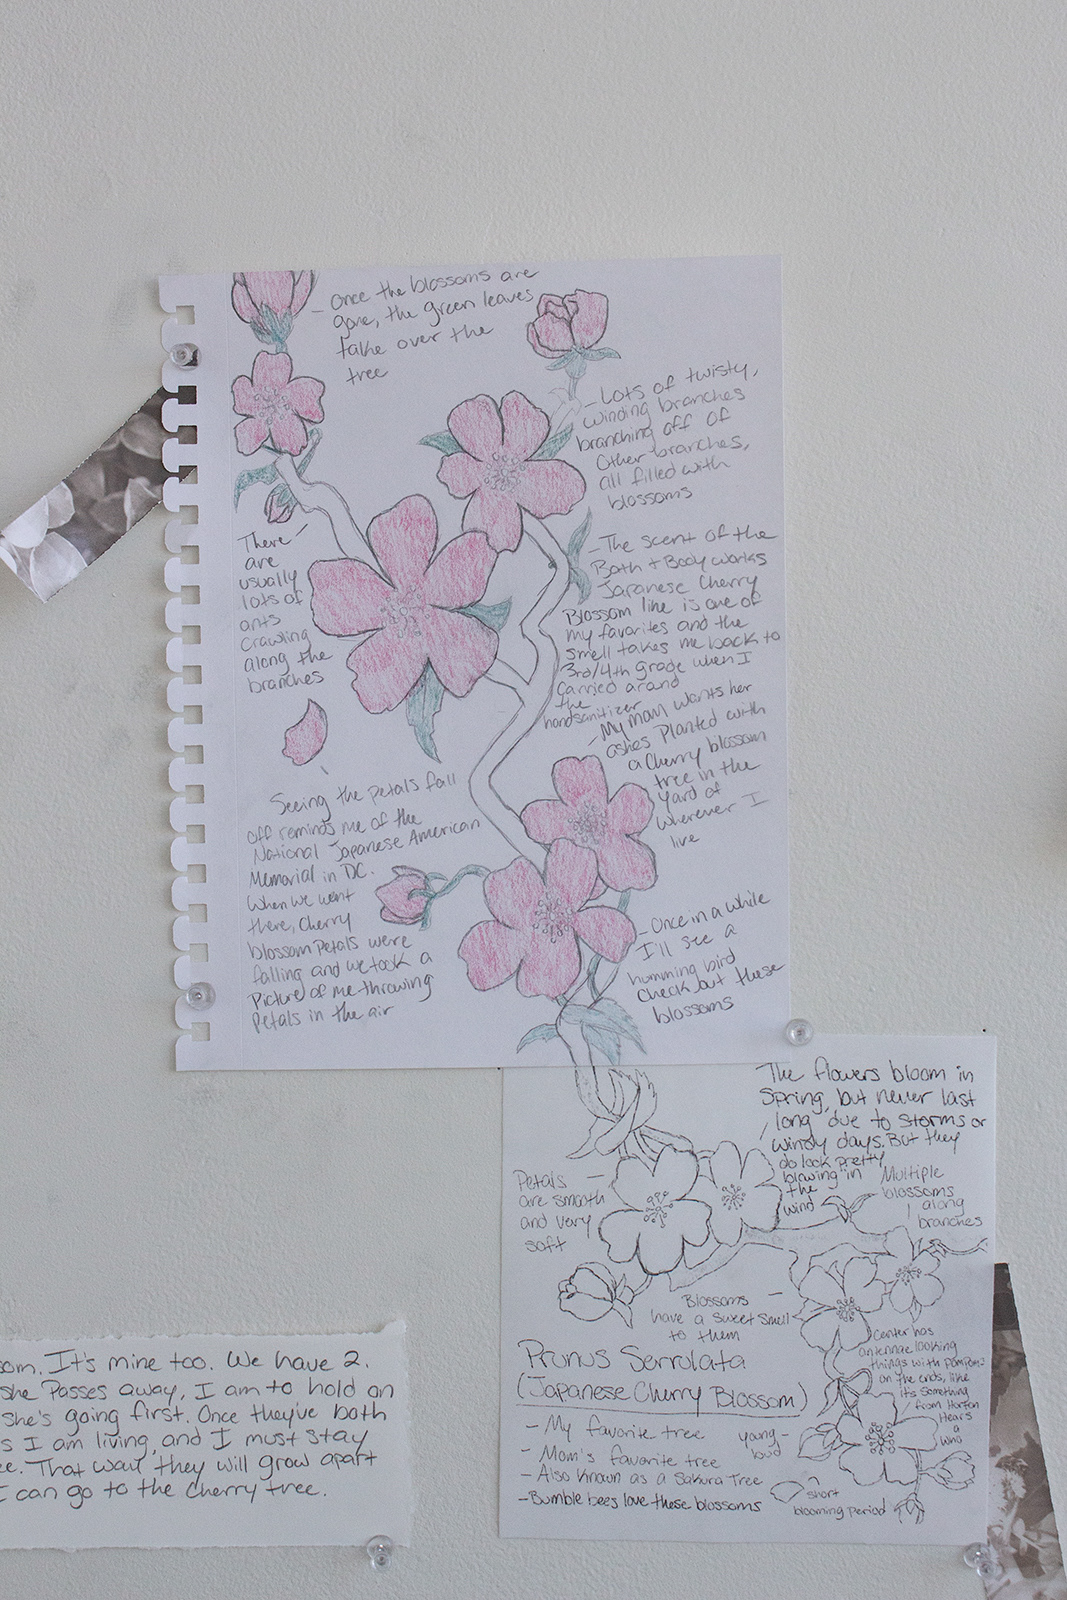 - Once the blossoms are
gone, the green leaves
take over the
tree
- Lots of twisty,
winding branches
branching off of
other branches,
all filled with
blossoms
There
are
usually
lots of
ants
crawling
along the
branches
- The scent of the
Bath + Body works
Japanese Cherry
Blossom line is one of
my favorites and the
smell takes me back to
3rd/4th grade when I
carried around
the
handsanitizer
- My mom wants her
ashes planted with
a cherry blossom
tree in the
yard of
wherever I
live
Seeing the petals fall
off reminds me of the
National Japanese American
Memorial in DC.
When we went
there, cherry
blossom petals were
falling and we took a
picture of me throwing
petals in the air
- Once in a while
I'll see a
humming bird
check out these
blossoms
The flowers bloom in
Spring, but never last
long due to storms or
windy days. But they
do look pretty
blowing in
the
wind
Petals
are smooth
and very
soft
Multiple
blossoms
along
branches
Blossoms
have a sweet smell
to them
Center has
antennae looking
things with pompoms
on the ends, like
it's something
from Horton
Hears
a
Who
Prunus Serrulata
(Japanese Cherry Blossom)
- My favorite tree
- Mom's favorite tree
- Also known as a Sakura Tree
- Bumble bees love these blossoms
young
bud
short
blooming period
som. It's mine too. We have 2.
she passes away, I am to hold on
she's going first. Once they've both
s I am living, and I must stay
ee. That way they will grow apart
I can go to the cherry tree.